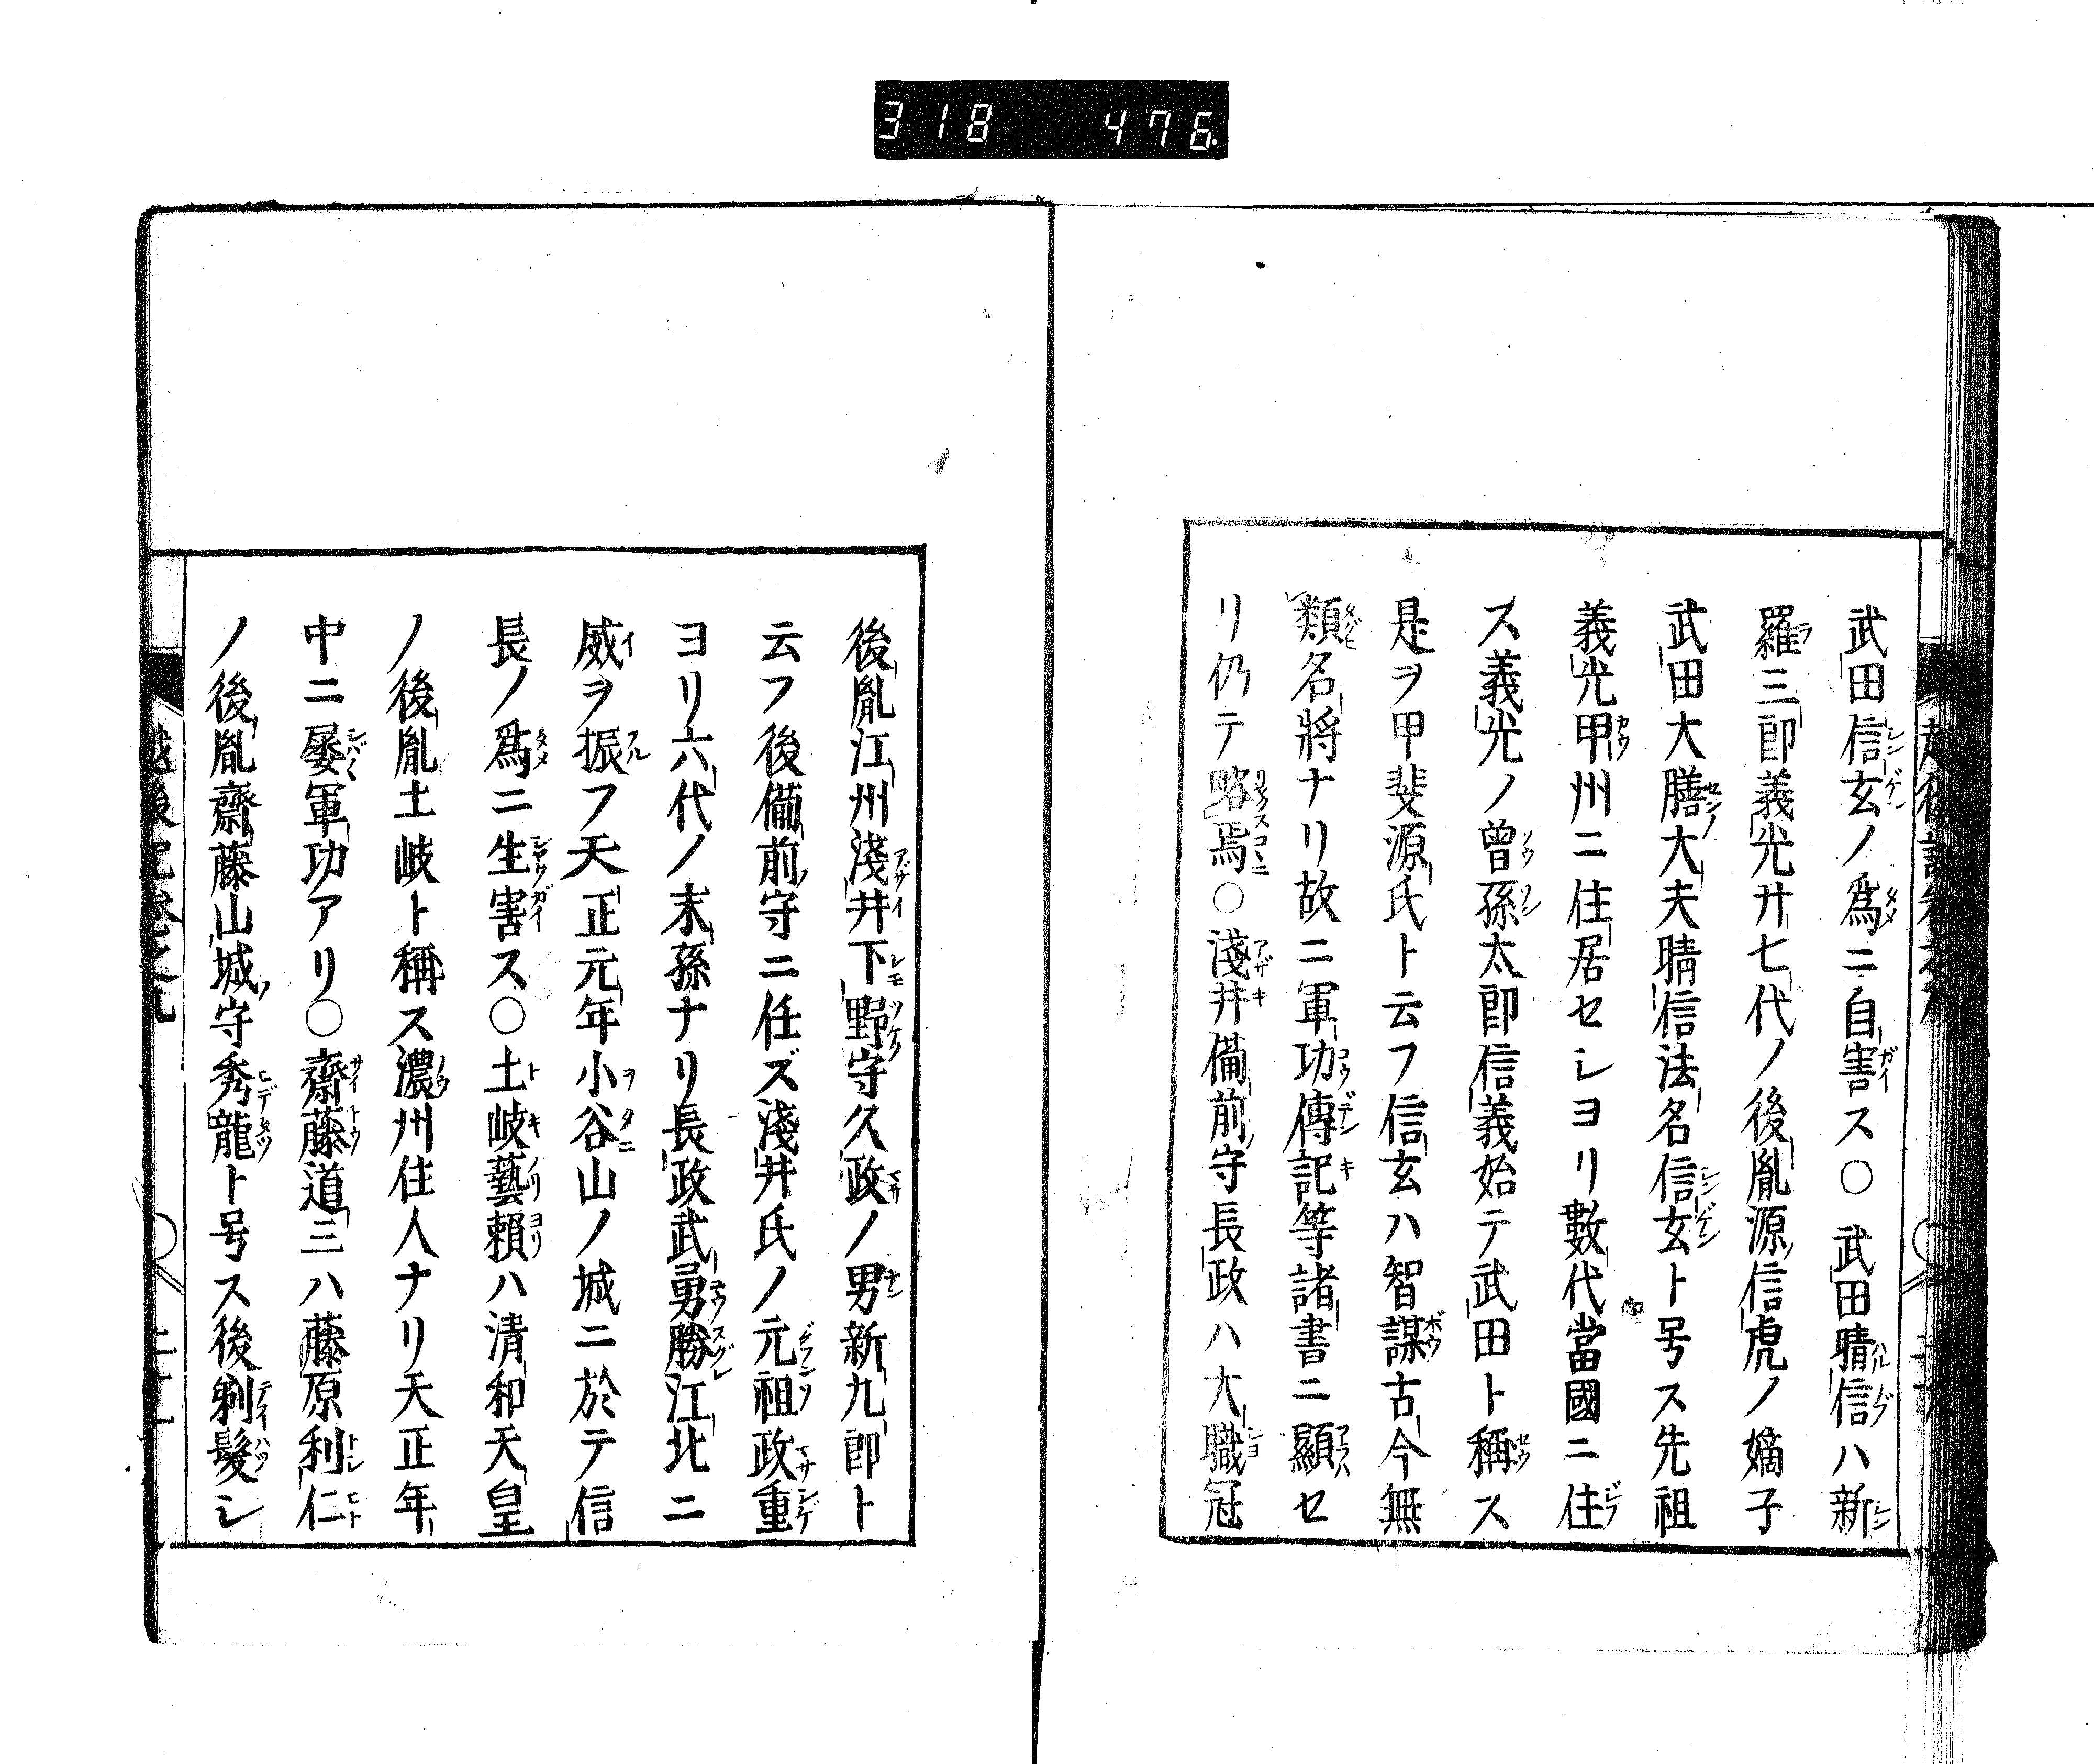 318 476
武田信玄ノ爲ニ自害ス○武田晴信ハ新
羅三郎義光廿七代ノ後胤源信虎ノ嫡子
武田大膳大夫晴信法名信玄ト号ス先祖
義光甲州ニ住居セシヨリ數代當國ニ住
ス義光ノ曾孫太郎信義始テ武田ト稱ス
是ヲ甲斐源氏ト云フ信玄ハ智謀古今無
類名將ナリ故ニ軍功傳記等諸書ニ顯セ
リ仍テ略焉○淺井備前守長政ハ大職冠
後胤江州淺井下野守久政ノ男新九郎ト
云フ後備前守ニ任ズ淺井氏ノ元祖政重
ヨリ六代ノ末孫ナリ長政武勇勝江北ニ
威ヲ振フ天正元年小谷山ノ城ニ於テ信
長ノ爲ニ生害ス○土岐藝頼ハ清和天皇
ノ後胤土岐ト稱ス濃州住人ナリ天正年
中ニ屡軍功アリ○齋藤道三ハ藤原利仁
ノ後胤齋藤山城守秀龍ト号ス後剃髮シ